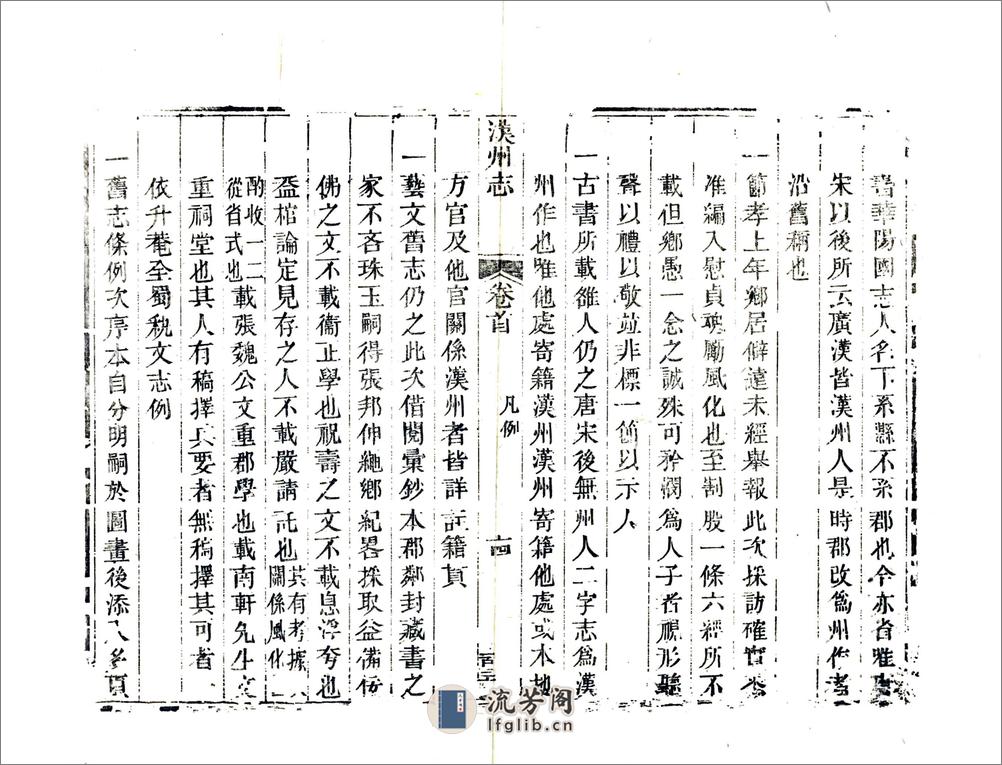 書華陽國志人名下系縣不系郡也今亦省雅
宋以後所云廣漢皆漢州人是時郡改爲州作者
沿舊稱也
一節孝上年鄉居僻遠未經舉報此次採訪確實
准編入慰貞魂勵風化也至割股一條六經所不
載但鄉愚一念之誠殊可矜憫爲人子者視形聽
聲以禮以敬並非標一節以示人
一古書所載雒人仍之唐宋後無州人二字志爲漢
州作也雖他處寄籍漢州漢州寄籍他處或本地
漢州志
卷首
凡例
方官及他官關係漢州者皆詳註籍貫
一藝文舊志仍之此次借閱彙鈔本郡鄰封藏書之
家不吝珠玉嗣得張邦伸繩鄉紀畧採取益備
佛之文不載衞正學也祝壽之文不載息浮夸也
蓋棺論定見存之人不載嚴請託也其有考據關係風化
酌收一二從省式也載張魏公文重郡學也載南軒先生文
重祠堂也其人有稿擇其要者無稿擇其可者
依升菴全蜀秇文志例
一舊志條例次序本自分明嗣於圖畫後添入多頁
流芳阁
lfglib.cn